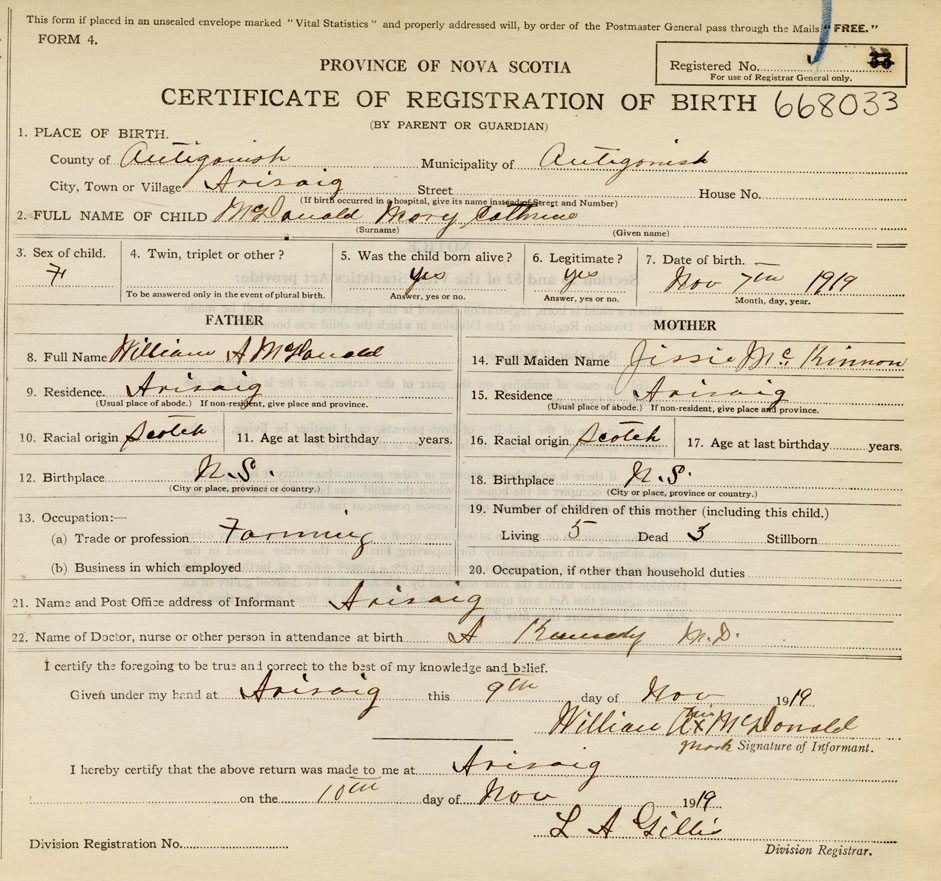 This form if placed in an unsealed envelope marked "Vital Statistics" and properly addressed will, by order of the Postmaster General pass through the Mails "FREE."
FORM 4.
PROVINCE OF NOVA SCOTIA
Registered No.
For use of Registrar General only.
CERTIFICATE OF REGISTRATION OF BIRTH 668033
(BY PARENT OR GUARDIAN)
1. PLACE OF BIRTH.
County of Antigonish Municipality of Antigonish
City, Town or Village Arisaig Street House No.
(If birth occurred in a hospital, give its name instead of Street and Number)
2. FULL NAME OF CHILD McDonald Mary Cathrine
(Surname) (Given name)
3. Sex of child. 4. Twin, triplet or other? 5. Was the child born alive? 6. Legitimate? 7. Date of birth.
F yes yes Nov 7th 1919
To be answered only in the event of plural birth. Answer, yes or no. Answer, yes or no. Month, day, year.
FATHER MOTHER
8. Full Name William A McDonald 14. Full Maiden Name Jissie Mc Kinnon
9. Residence Arisaig 15. Residence Arisaig
(Usual place of abode.) If non-resident, give place and province. (Usual place of abode.) If non-resident, give place and province.
10. Racial origin Scotch 11. Age at last birthday years. 16. Racial origin Scotch 17. Age at last birthday years.
12. Birthplace N.S. 18. Birthplace N.S.
(City or place, province or country.) (City or place, province or country.)
13. Occupation:— 19. Number of children of this mother (including this child.)
(a) Trade or profession Farming Living 5 Dead 3 Stillborn
(b) Business in which employed 20. Occupation, if other than household duties
21. Name and Post Office address of Informant Arisaig
22. Name of Doctor, nurse or other person in attendance at birth A Kennedy M.D.
I certify the foregoing to be true and correct to the best of my knowledge and belief.
Given under my hand at Arisaig this 9th day of Nov 1919
William A his x McDonald
mark Signature of Informant.
I hereby certify that the above return was made to me at Arisaig
on the 10th day of Nov 1919
L A Gillis
Division Registration No. Division Registrar.